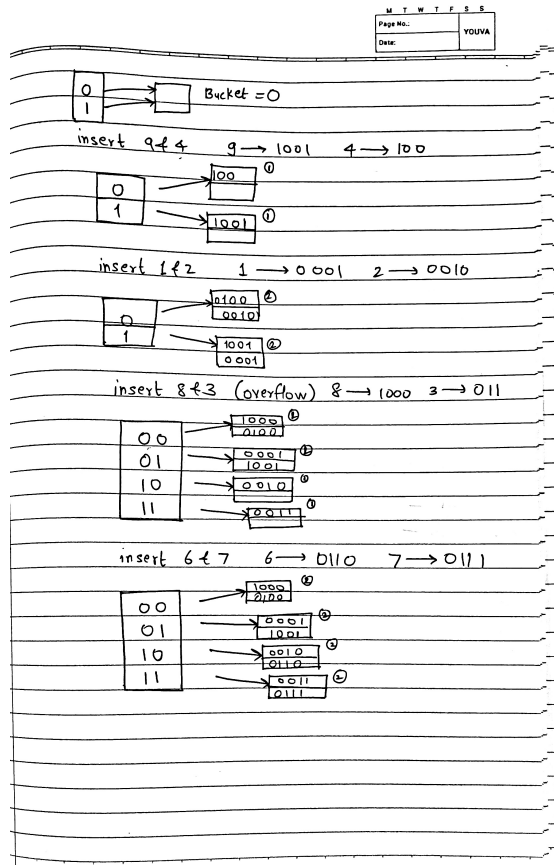 M T W T F S S
Page No.:
YOUVA
Date:
0
1
Bucket = 0
insert 9 & 4 9 → 1001 4 → 100
0
1
100 ①
1001 ①
insert 1 & 2 1 → 0001 2 → 0010
0
1
0100 ②
0010
1001 ②
0001
insert 8 & 3 (overflow) 8 → 1000 3 → 011
00
01
10
11
1000 ②
0100
0001 ②
1001
0010 ①
0011 ①
insert 6 & 7 6 → 0110 7 → 0111
00
01
10
11
1000 ②
0100
0001 ②
1001
0010 ②
0110
0011 ②
0111